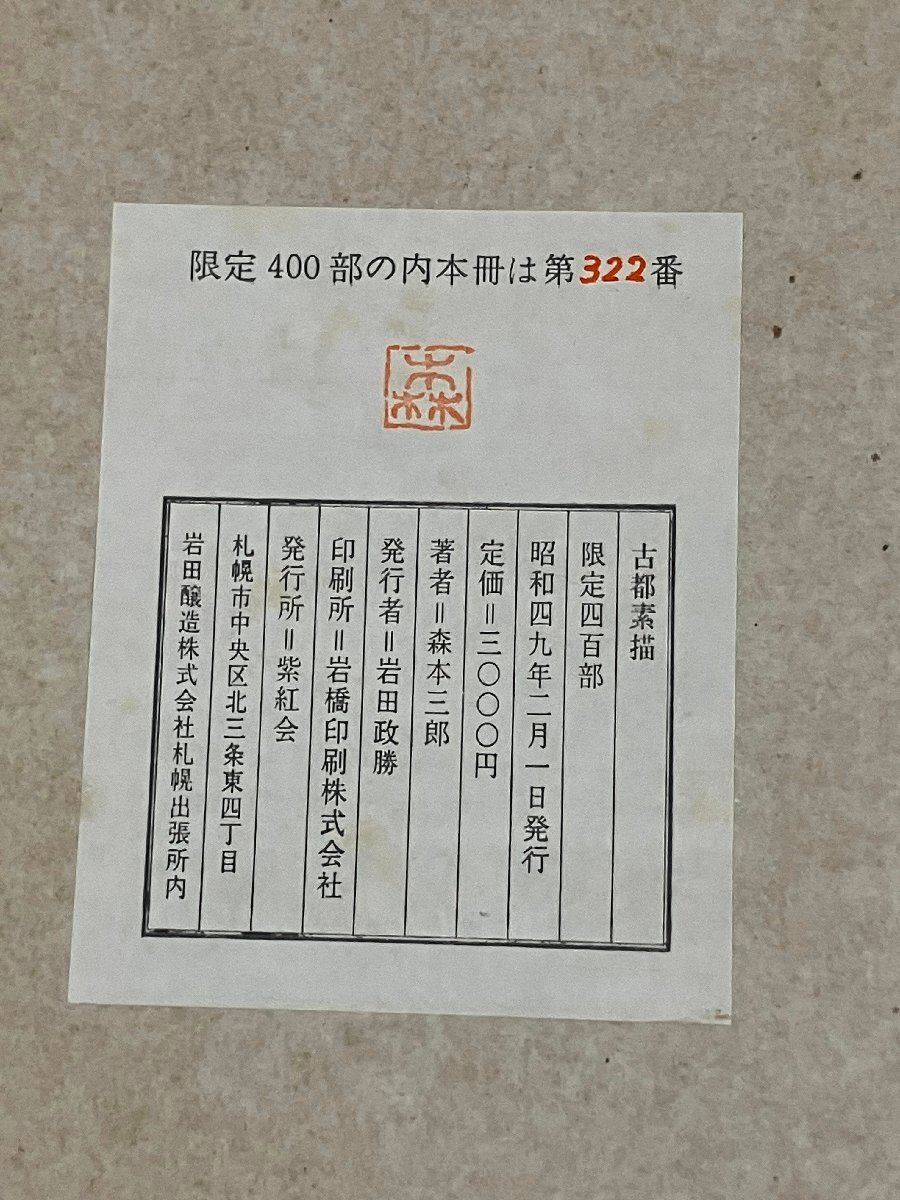 限定400部の内本冊は第322番
森
古都素描
限定四百部
昭和四九年二月一日発行
定価＝三〇〇〇円
著者＝森本三郎
発行者＝岩田政勝
印刷所＝岩橋印刷株式会社
発行所＝紫紅会
札幌市中央区北三条東四丁目
岩田醸造株式会社札幌出張所内